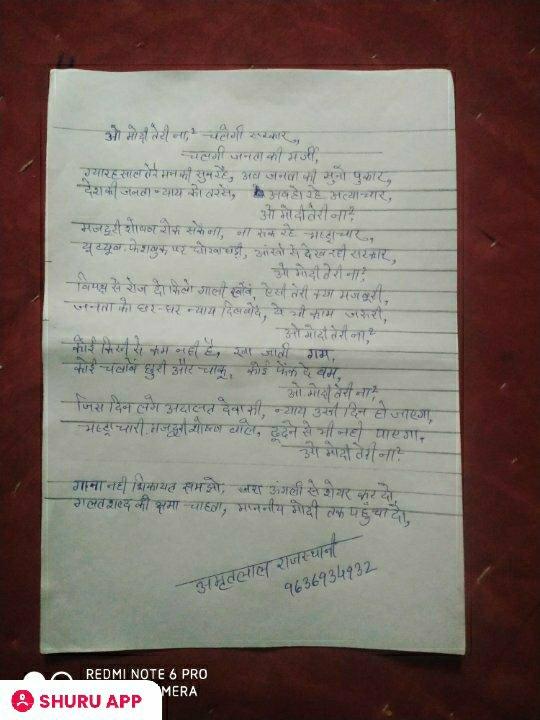 ओ मोदी तेरी ना,² चलेगी सरकार,
चलेगी जनता की मर्जी,
ग्यारह साल तेरे मन की सुन रहे, अब जनता की सुनो पुकार,
देश की जनता न्याय को तरसे, अब हो रहे अत्याचार,
ओ मोदी तेरी ना?
मजदूरी शोषण रोक सके ना, ना रुक रहे भ्रष्टाचार,
यूट्यूब फेशबुक पर धोखाधड़ी, आंखों से देख रही सरकार,
ओ मोदी तेरी ना?
विपक्ष से रोज दो किलो गाली खावे, ऐसी तेरी क्या मजबूरी,
जनता को घर-घर न्याय दिलवादे, ये भी काम जरूरी,
ओ मोदी तेरी ना,²
कोई किसी से कम नहीं है, खा जाती गम,
कोई चलावे छुरी और चाकू, कोई फेंक दे बम,
ओ मोदी तेरी ना?
जिस दिन लगे अदालत देवा की, न्याय उसी दिन हो जाएगा,
भ्रष्टाचारी मजदूरी शोषण वाले, ढूढने से भी नही पाएगा,
ओ मोदी तेरी ना?
गाना नही शिकायत समझो, जरा ऊंगली से शेयर कर दो,
गलत शब्द की क्षमा चाहता, माननीय मोदी तक पहुंचा दो,
अमृतलाल राजस्थानी
9636934932
REDMI NOTE 6 PRO
MERA
SHURU APP